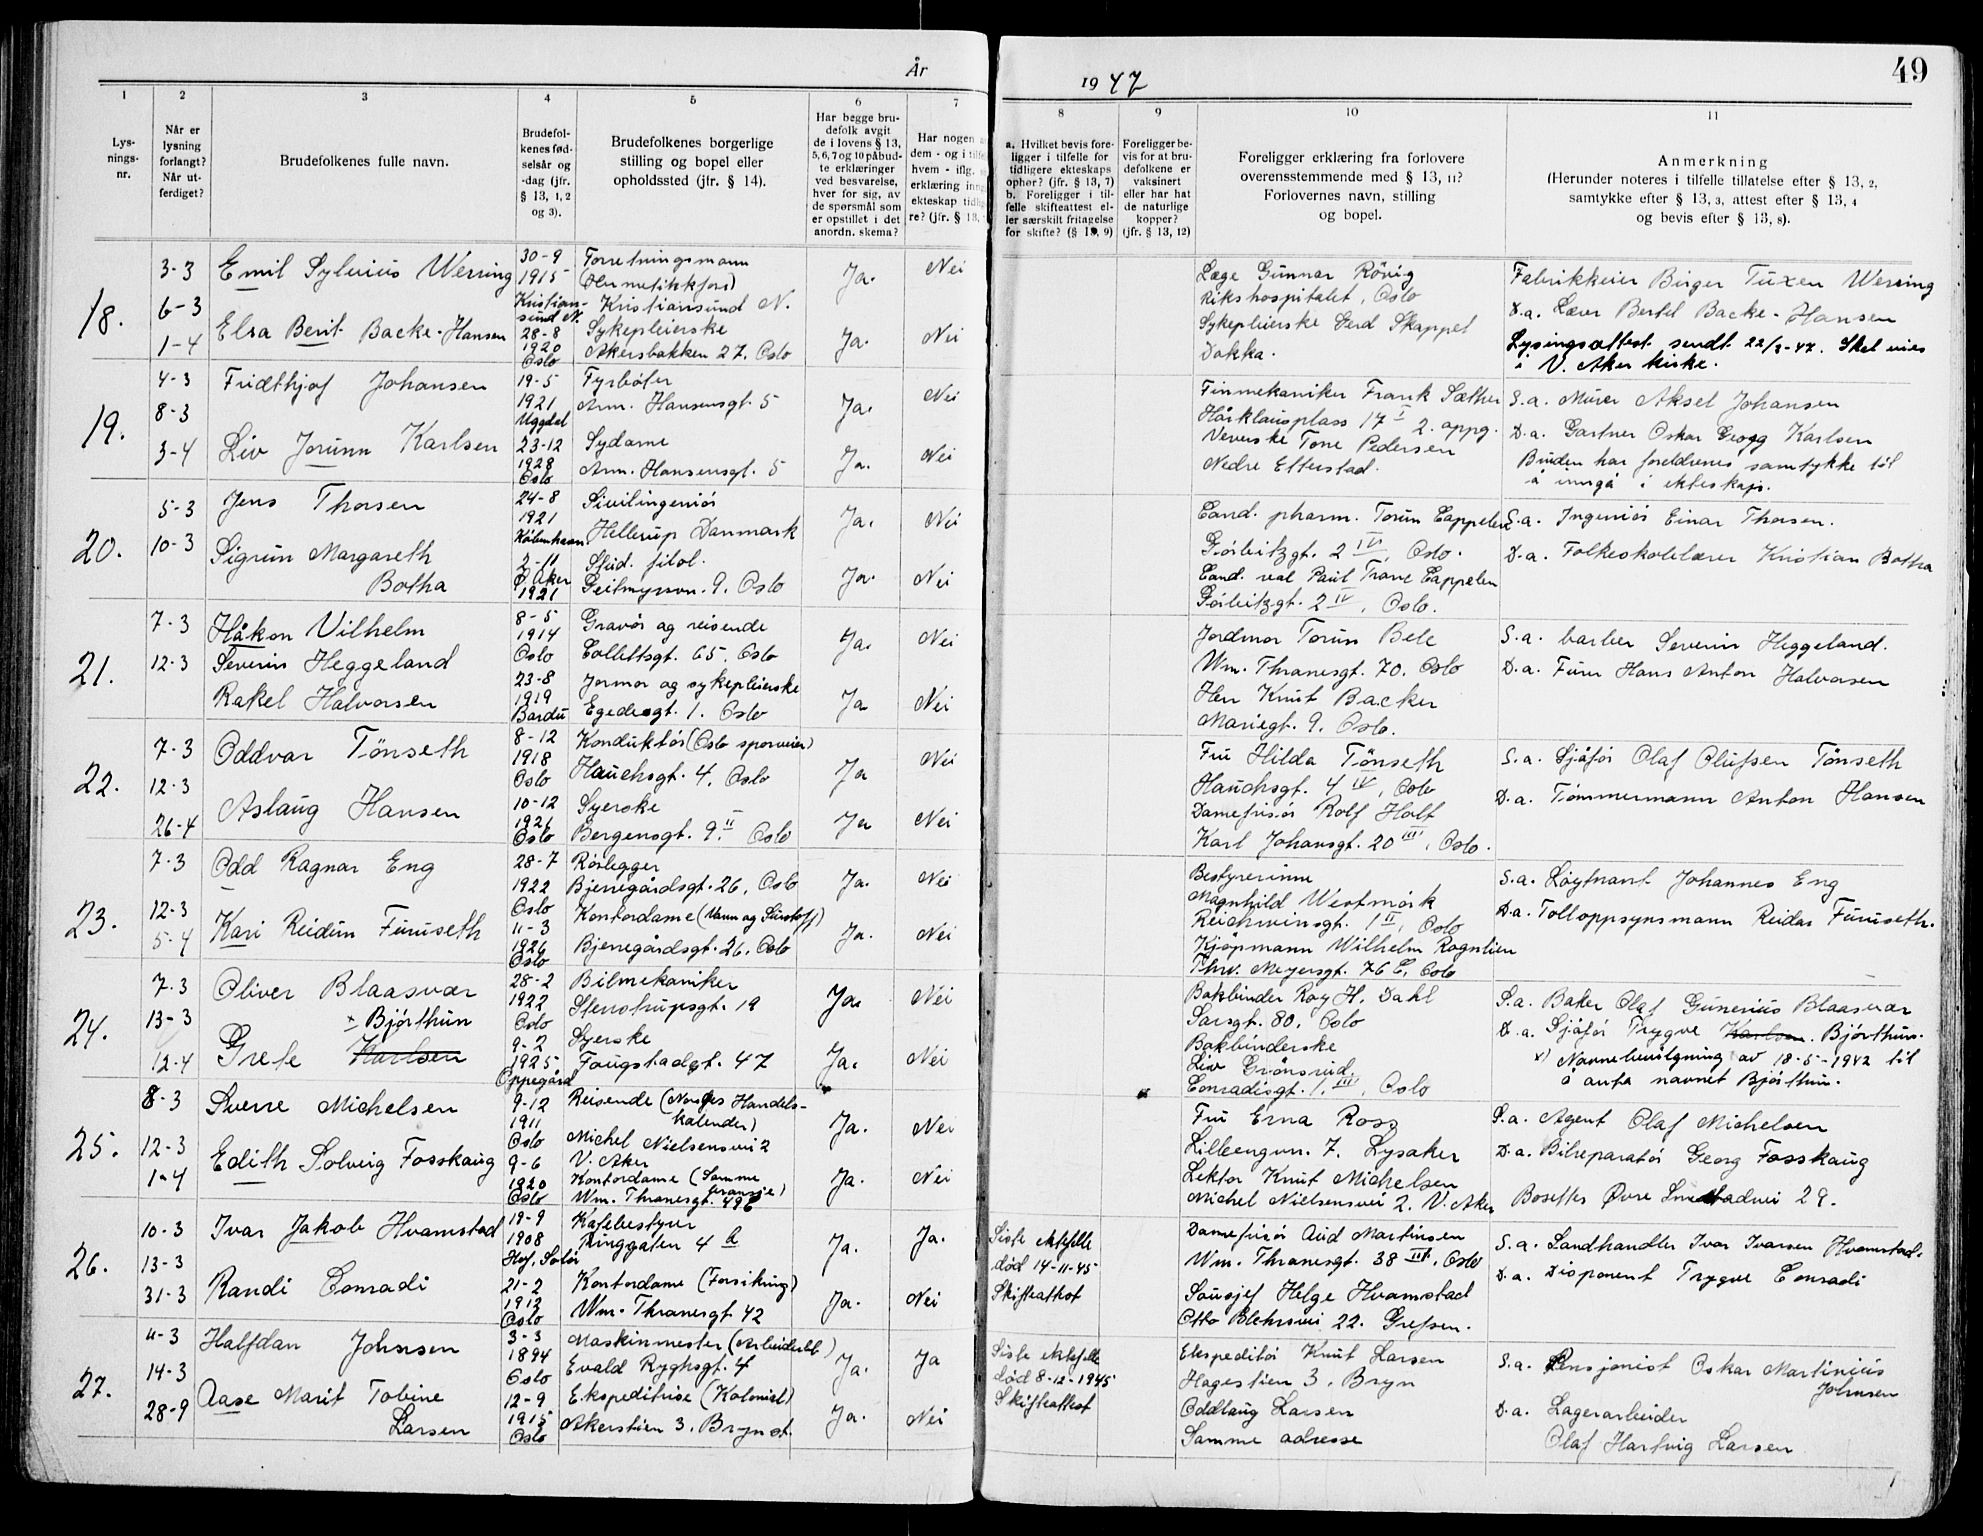 År
1947
49
1
2
3
4
5
6
7
8
9
10
11
Lys-
nings-
nr.
Når er
lysning
forlangt?
Når ut-
ferdiget?
Brudefolkenes fulle navn.
Brudefol-
kenes fød-
selsår og
-dag (jfr.
§ 13, 1, 2
og 3).
Brudefolkenes borgerlige
stilling og bopel eller
opholdssted (jfr. § 14).
Har begge bru-
defolk avgit
de i lovens § 13,
5, 6, 7 og 10 påbud-
te erklæringer
ved besvarelse,
hver for sig, av
de spørsmål som
er opstillet i det
anordn. skema?
Har nogen a
dem - og i tilfe
hvem - iflg.
erklæring inng
ekteskap tidlig
re? (jfr. § 13,
a. Hvilket bevis fore-
ligger i tilfelle for
tidligere ekteskaps
ophør? (jfr. § 13, 7)
b. Foreligger i til-
felle skifteattest el-
ler særskilt fritagelse
for skifte? (§ 13, 9)
Foreligger be-
vis for at bru-
defolkene er
vaksinert
eller har hat
de naturlige
kopper?
(jfr. § 13, 12)
Foreligger erklæring fra forlovere
overensstemmende med § 13, 11?
Forlovernes navn, stilling
og bopel.
Anmerkning
(Herunder noteres i tilfelle tillatelse efter § 13, 2,
samtykke efter § 13, 3, attest efter § 13, 4
og bevis efter § 13, 8).
18.
3-3
6-3
1-4
Emil Sylvius Werring
Elsa Berit Backe-Hansen
30-9
1915
Kristian-
sund N.
28-8
1920
Oslo
Forretningsmann
(Hermetikkfors)
Kristiansund N.
Sykepleierske
Akersbakken 27. Oslo
Ja.
Ja.
Nei
Nei
Læge Gunnar Rövig
Rikshospitalet, Oslo
Sykepleierske Gerd Skappel
Dokka.
Fabrikkeier Birger Tuxen Werring
D.a. Lærer Bertel Backe-Hansen
Lysingsattest sendt 22/3-47. Skal vies
i V. Aker kirke.
19.
4-3
8-3
3-4
Fridthjof Johansen
Liv Jorunn Karlsen
19-5
1921
Uggdal
23-12
1928
Oslo
Fyrbøter
Arm. Hansensgt. 5
Sydame
Arm. Hansensgt. 5
Ja.
Ja.
Nei
Nei
Finmekaniker Frank Sæther
Hårklausplass 17 I 2. oppg.
Veverske Tone Pedersen
Nedre Etterstad.
S.a. Murer Aksel Johansen
D.a. Gartner Oskar Georg Karlsen
Bruden har foreldrenes samtykke til
å inngå i ekteskap.
20.
5-3
10-3
Jens Thorsen
Sigrun Margareth
Botha
24-8
1921
København
2-11
Ø. Aker
1921
Sivilingeniør
Hellerup Danmark
Stud. filol.
Geitmyrsvn. 9. Oslo
Ja.
Ja.
Nei
Nei
Cand. pharm. Torun Cappelen
Görbitzgt. 2 IV, Oslo.
Cand. real Paul Trane Cappelen
Görbitzgt. 2 IV, Oslo.
S.a. Ingeniör Einar Thorsen.
D.a. Folkeskolelærer Kristian Botha
21.
7-3
12-3
Håkon Vilhelm
Severin Heggeland
Rakel Halvorsen
8-5
1914
Oslo
23-8
1919
Bardu
Gravör og reisende
Collettsgt. 65. Oslo
Jormor og sykepleierske
Egedesgt. 1. Oslo
Ja.
Ja
Nei
Nei
Jordmor Torun Bele
Wm. Thranesgt. 70. Oslo
Herr Knut Backer
Mariegt. 9. Oslo.
S.a. barber Severin Heggeland.
D.a. Furer Hans Anton Halvorsen
22.
7-3
12-3
26-4
Oddvar Tönseth
Aslaug Hansen
8-12
1918
Oslo
10-12
1921
Oslo
Konduktör (Oslo sporveier)
Hauchsgt. 4. Oslo
Syerske
Bergensgt. 9. II Oslo
Ja
Ja
Nei
Nei
Fru Hilda Tönseth
Hauchsgt. 4 IV, Oslo
Damefrisör Rolf Holt
Karl Johansgt. 20 III, Oslo.
S.a. Sjåför Olaf Olufsen Tönseth
D.a. Tömmermann Anton Hansen
23.
7-3
12-3
5-4
Odd Ragnar Eng
Kari Reidun Furuseth
28-7
1922
Oslo
11-3
1926
Oslo
Rörlegger
Bjerregårdsgt. 26, Oslo
Kontordame (Vann og Surstoff)
Bjerregårdsgt. 26. Oslo
Ja.
Ja.
Nei
Nei
Bestyrerinne
Magnhild Westmörk
Reichweinsgt. 1 II, Oslo
Kjöpmann Wilhelm Rognlien
Thv. Meyersgt. 76 C, Oslo
S.a. Löytnant Johannes Eng
D.a. Tolloppsynsmann Reidar Furuseth.
24.
7-3
13-3
12-4
Oliver Blaasvær
x Björthun
Grete Karlsen
28-2
1922
Oslo
9-2
1925
Oppegård
Bilmekaniker
Stenstrupsgt. 19
Syerske
Fougstadgt. 47
Ja.
Ja.
Nei
Nei
Bokbinder Roy H. Dahl
Sarsgt. 80. Oslo
Bokbinderske
Liv Grönsrud
Conradisgt. 1. III, Oslo
S.a. Baker Olaf Gunerius Blaasvær
D.a. Sjåför Trygve Karlsen. Björthun.
x) Navnebevilgning av 18-5-1942 til
å anta navnet Björthun.
25.
8-3
12-3
1-4
Sverre Michelsen
Edith Solveig Fosskaug
9-12
1911
Oslo
9-6
1920
Oslo
Reisende (Norges Handels-
kalender)
Michel Nielsensvei 2
V. Aker
Kontordame (Samme
bransje)
Wm. Thranesgt. 49c
Ja.
Ja.
Nei
Nei
Fru Erna Ross
Lilleengvn. 7. Lysaker
Lektor Knut Michelsen
Michel Nielsensvei 2. V. Aker
S.a. Agent Olaf Michelsen
D.a. Bilreparatör Georg Fosskaug
Bosettes Øvre Smestadvei 29.
26.
10-3
13-3
31-3
Ivar Jakob Hvamstad
Randi Conradi
19-9
1908
Hof, Solör
21-2
1912
Oslo
Kafebestyrer
Ringgaten 4 b
Kontordame (Forsikring)
Wm. Thranesgt 42
Ja.
Ja.
Ja.
Nei
Siste ektefelle
död 14-11-45
Skifteattest
Damefrisör Aud Martinsen
Wm. Thranesgt. 38 III, Oslo
Sousjef Helge Hvamstad
Otto Blehrsvei 22. Grefsen.
S.a. Landhandler Ivar Ivarsen Hvamstad.
D.a. Disponent Trygve Conradi
27.
4-3
14-3
28-9
Halfdan Johnsen
Aase Marit Tobine
Larsen
3-3
1894
Oslo
12-9
1915
Oslo
Maskinmester (Arbeiderbl.)
Evald Ryghsgt. 4
Ekspeditrise (Kolonial)
Akerstien 3. Bryn st.
Ja.
Ja.
Ja
Nei
Siste ektefelle
död 8-12-1945
Skifteattest
Ekspeditör Knut Larsen
Hagestien 3. Bryn
Oddlaug Larsen
Samme adresse
S.a. Pensjonist Oskar Martinius
Johnsen
D.a. Lagerarbeider
Olaf Hartvig Larsen